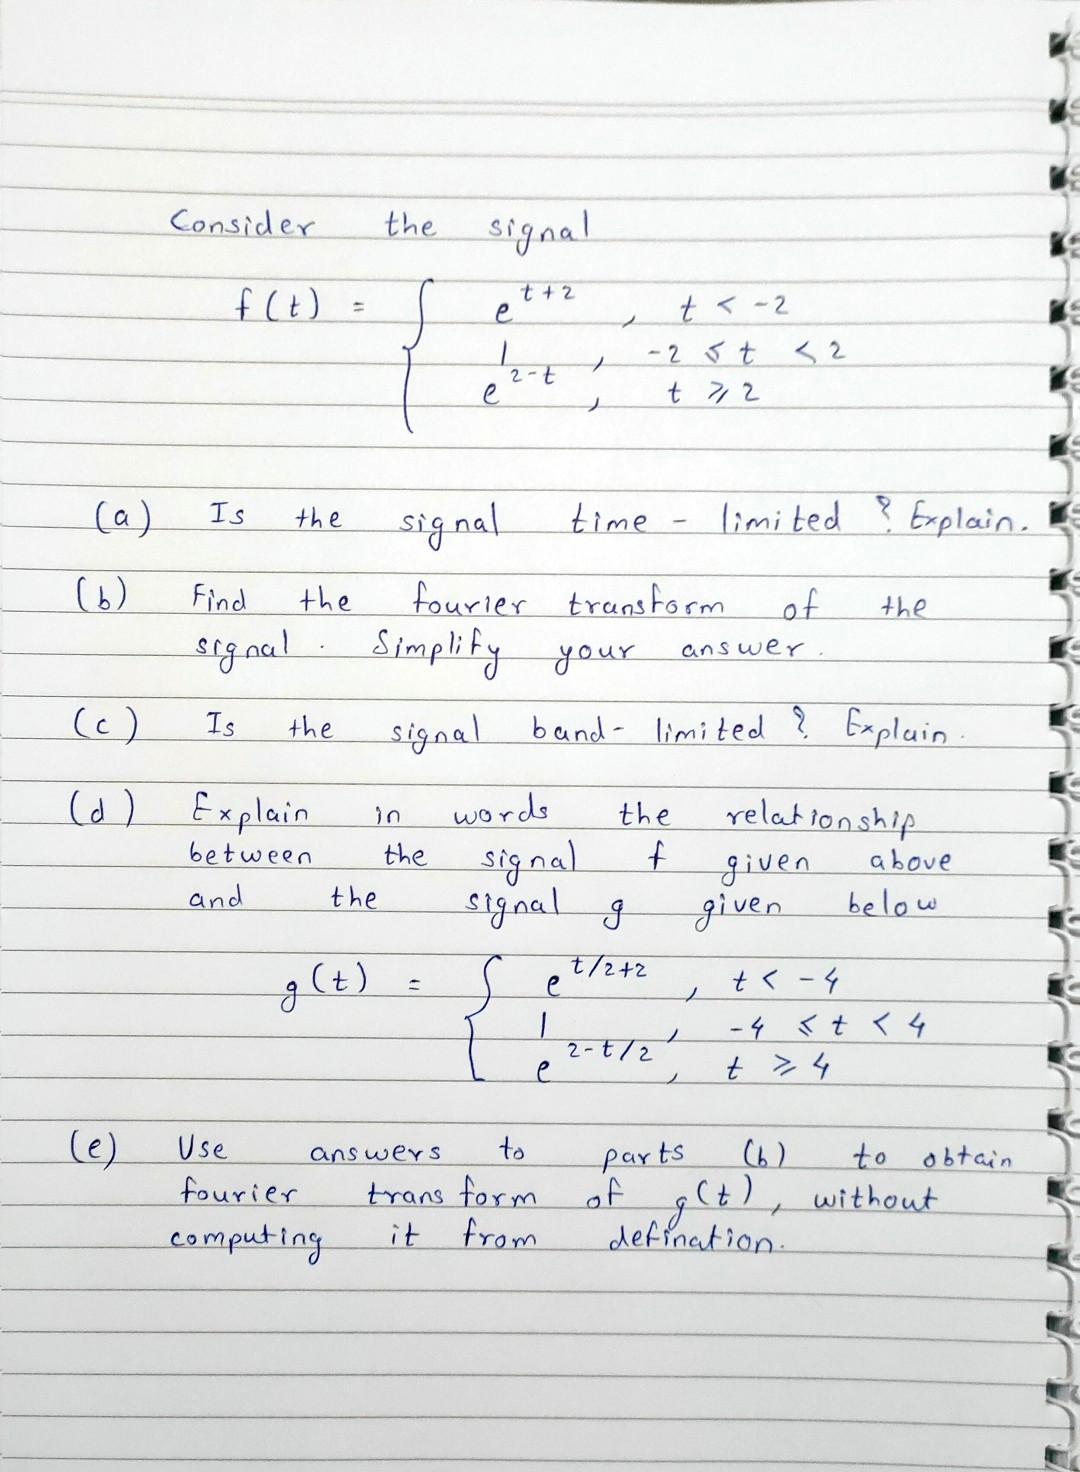 Consider the signal
f(t) = { e^{t+2} , t < -2
1 , -2 ≤ t < 2
e^{2-t} , t ⩾ 2
(a) Is the signal time - limited ? Explain.
(b) Find the fourier transform of the
signal . Simplify your answer .
(c) Is the signal band- limited ? Explain .
(d) Explain in words the relationship
between the signal f given above
and the signal g given below
g(t) = { e^{t/2+2} , t < -4
1 , -4 ≤ t < 4
e^{2-t/2} , t ⩾ 4
(e) Use answers to parts (b) to obtain
fourier transform of g(t) , without
computing it from defination.